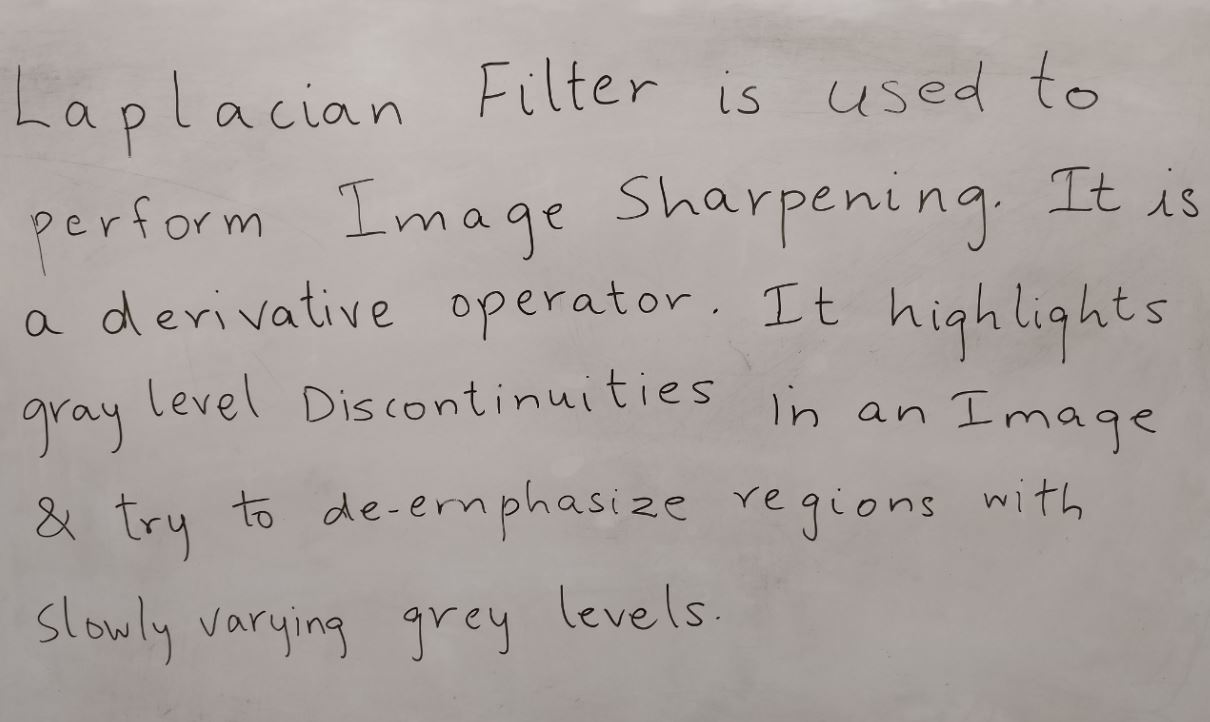 Laplacian Filter is used to
perform Image Sharpening. It is
a derivative operator. It highlights
gray level Discontinuities in an Image
& try to de-emphasize regions with
slowly varying grey levels.